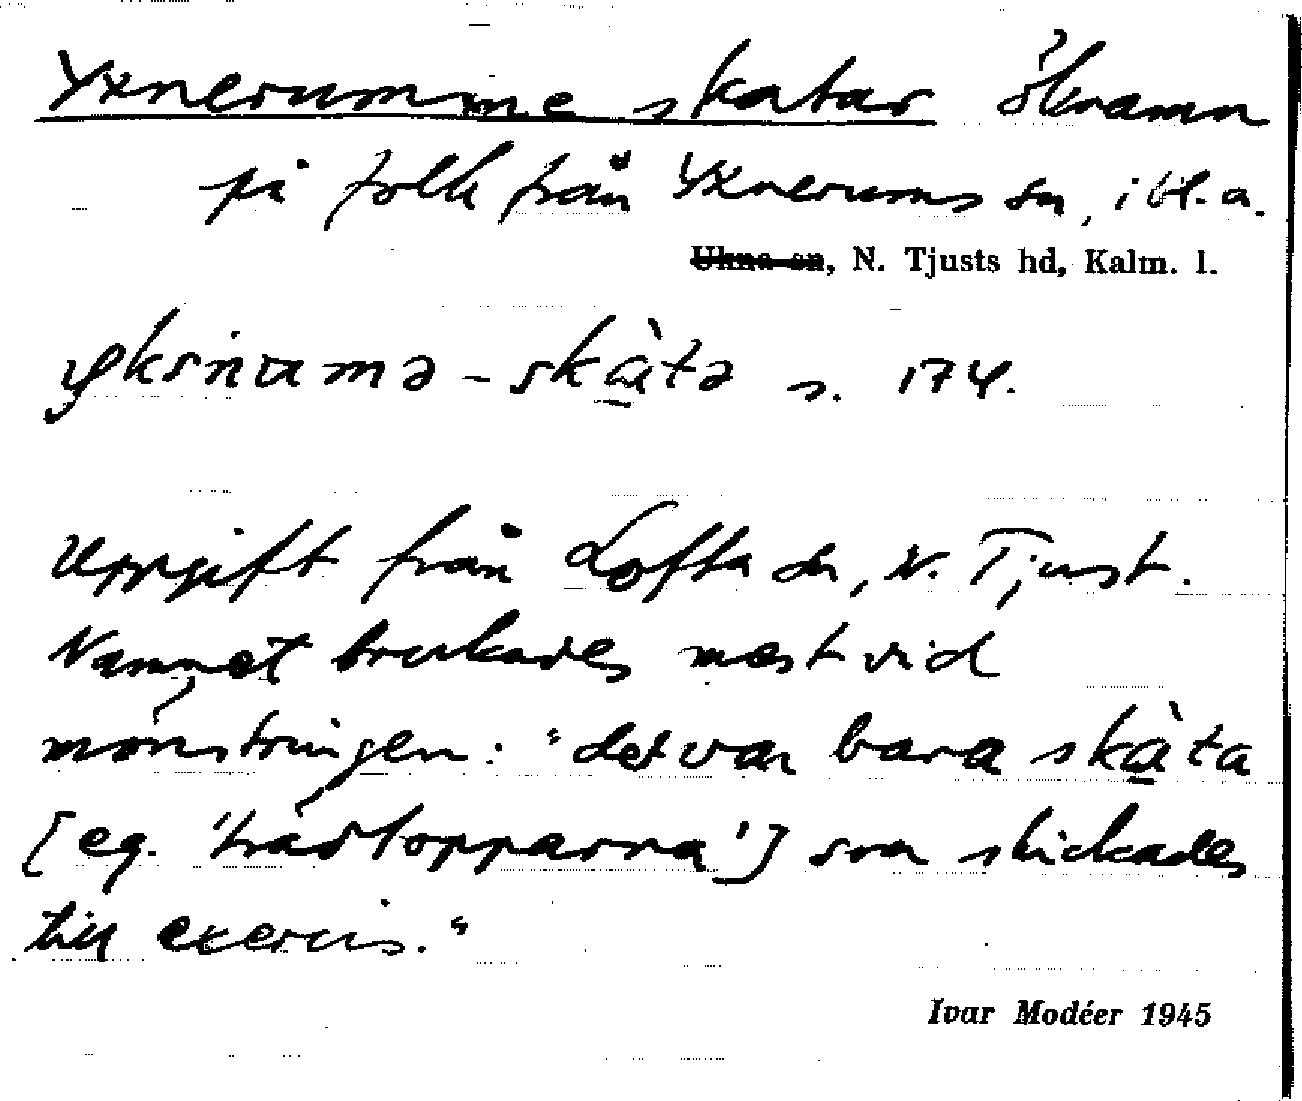 Yxnerumme skatar öknamn
på folk från Yxnerums sn, i bl. a.
Ukna sn, N. Tjusts hd, Kalm. l.
yksnumə-skàtə s. 174.
Uppgift från Lofta sn, N. Tjust.
Namnet brukades mest vid
mönstringen: "det var bara skàta
[eg. 'trädtopparna'] som skickades
till exercis."
Ivar Modéer 1945